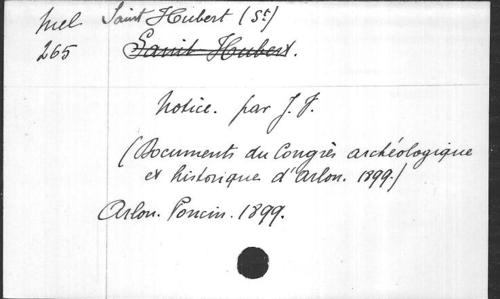 Mel Saint Hubert (St)
265 Sanit Hubert.
Notice. par J. F.
(Documents du Congrès archéologique
et historique d'Arlon. 1899.)
Arlon. Poncin. 1899.